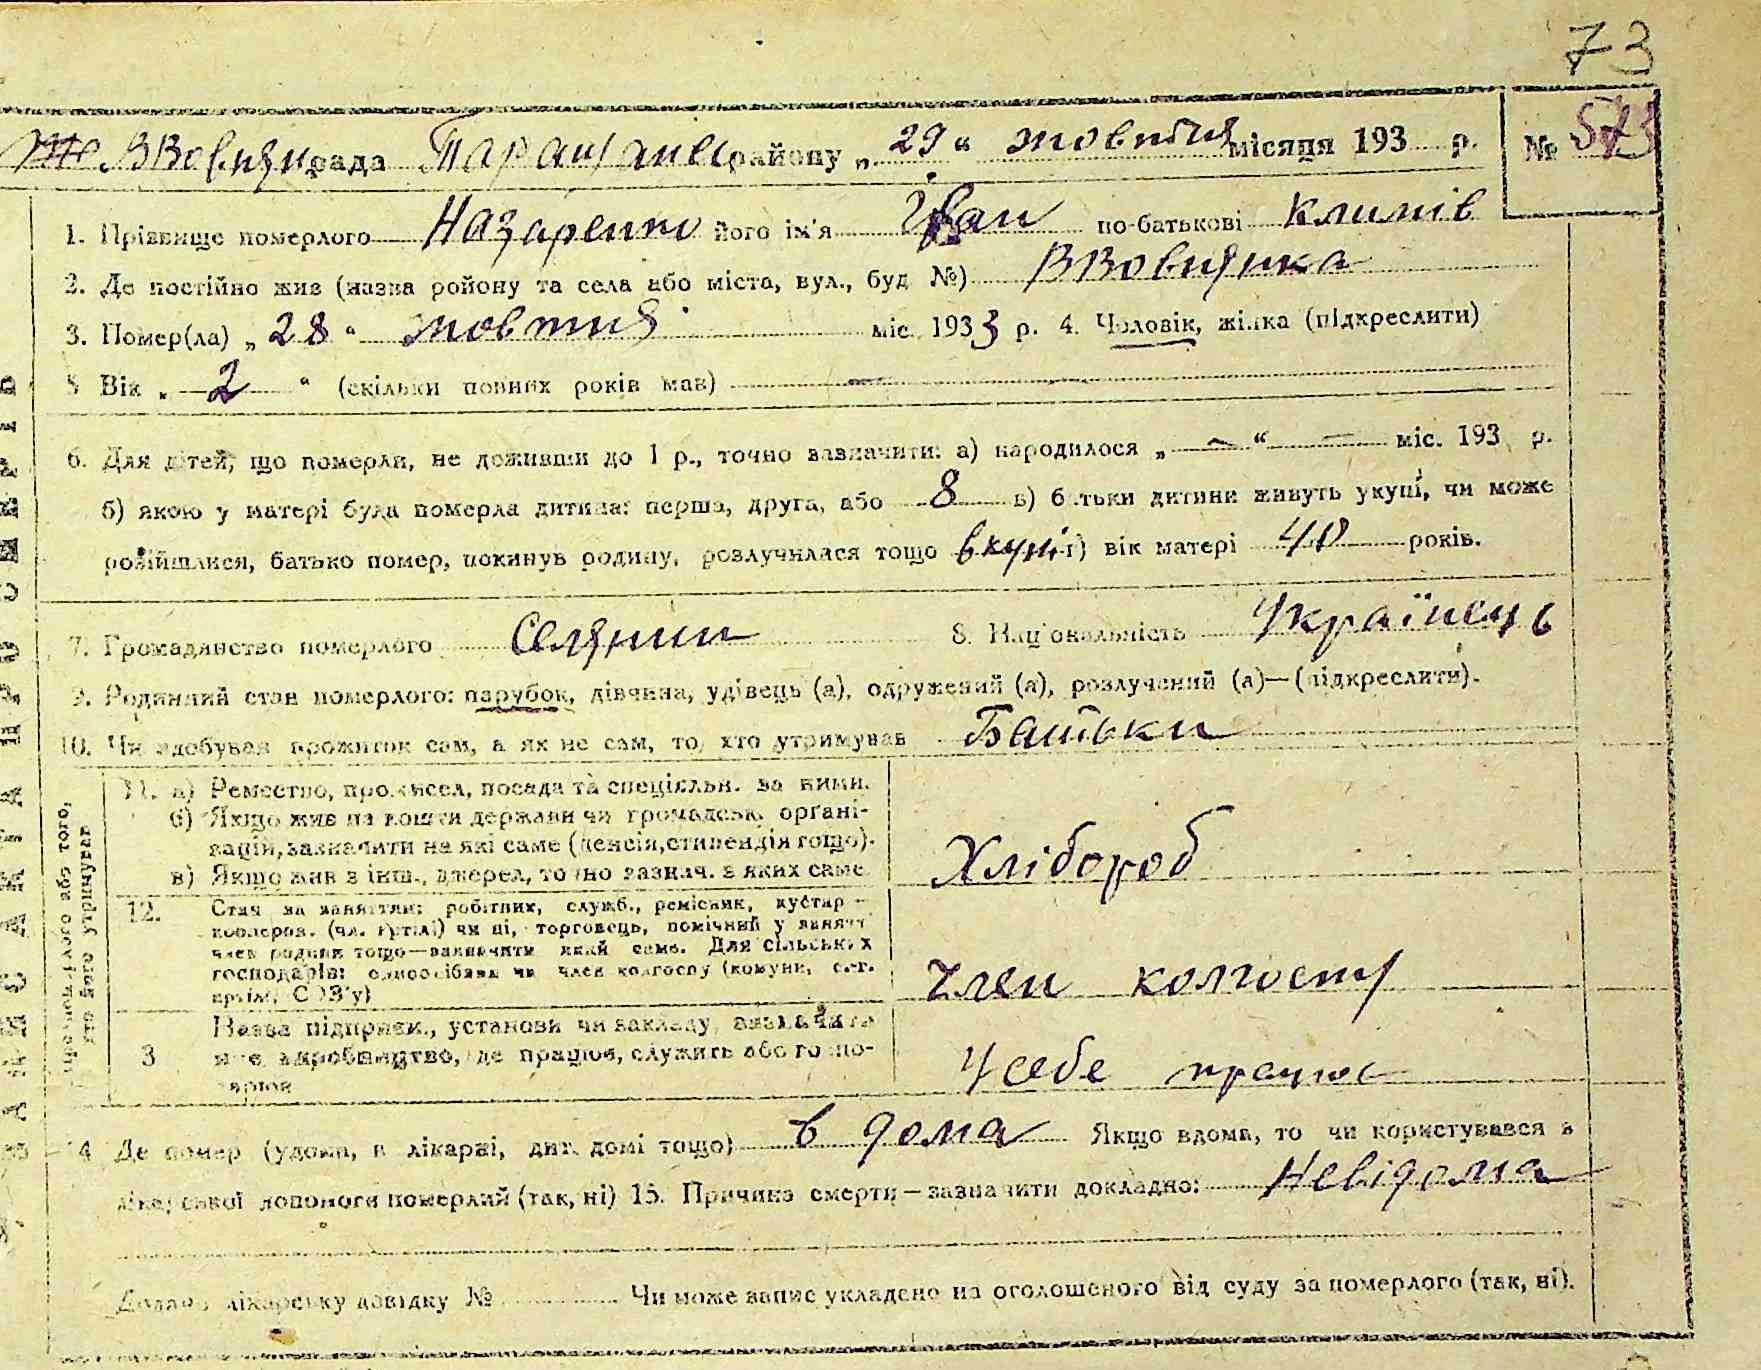 73
В Вовнянсрада Таращанськ району „ 29 “ жовтня місяця 193 р. № 573
1. Прізвище померлого Назаренко його ім'я Іван по-батькові Климів
2. Де постійно жив (назва ройону та села або міста, вул., буд №) В Вовнянка
3. Помер(ла) „ 28 “ жовтня міс. 1933 р. 4. Чоловік, жінка (підкреслити)
5 Вік „ 2 “ (скільки повних років мав) —
6. Для дітей, що померли, не доживши до 1 р., точно зазначити: а) народилося „ — “ — міс. 193 р.
б) якою у матері була померла дитина: перша, друга, або 8 в) батьки дитини живуть укупі, чи може
розійшлися, батько помер, покинув родину, розлучилася тощо вкупі г) вік матері 40 років.
7. Громадянство померлого Селянин 8. Національність Українець
9. Родинний стан померлого: парубок, дівчина, удівець (а), одружений (а), розлучений (а)—(підкреслити).
10. Чи здобував прожиток сам, а як не сам, то хто утримував Батьки
Про померлого або того,
хто його утримував
11. а) Ремество, промисел, посада та спеціяльн. за ними.
б) Якщо жив на кошти держави чи громадськ. органі-
зацій, зазначити на які саме (пенсія, стипендія тощо).
в) Якщо жив з інш., джерел, точно зазнач. з яких саме
Хлібороб
12. Стан за заняттям: робітник, служб., ремісник, кустар —
кооперов. (чл. артілі) чи ні, торговець, помічний у занятт
член родини тощо—зазначити який саме. Для сільських
господарів: одноосібник чи член колгоспу (комуни, с.-г.
артілі, СОЗ'у)
Член колгоспу
3 Назва підприєм., установи чи закладу, зазначити
яке виробництво, де працює, служить або госпо-
дарює
У себе працює
14 Де помер (удома, в лікарні, дит. домі тощо) в дома Якщо вдома, то чи користувався з
лікарської допомоги померлий (так, ні) 15. Причина смерти — зазначити докладно: Невідома
Додано лікарську довідку № Чи може запис укладено на оголошеного від суду за померлого (так, ні).